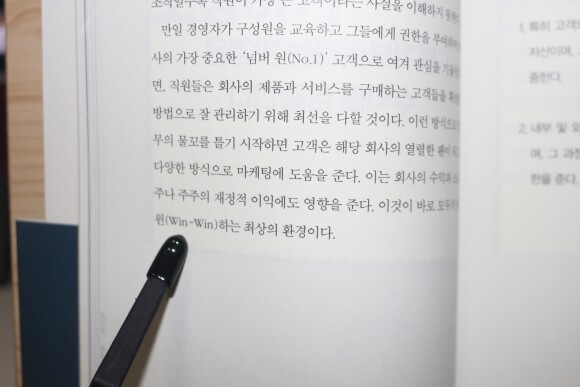 조직일수록 직원이 가장 큰 고객이라는 사실을 이해하지 못한
만일 경영자가 구성원을 교육하고 그들에게 권한을 부여하여
사의 가장 중요한 '넘버 원(No.1)' 고객으로 여겨 관심을
면, 직원들은 회사의 제품과 서비스를 구매하는 고객들을
방법으로 잘 관리하기 위해 최선을 다할 것이다. 이런 방식으로
무의 물꼬를 틀기 시작하면 고객은 해당 회사의 열렬한 팬이
다양한 방식으로 마케팅에 도움을 준다. 이는 회사의 수익과
주나 주주의 재정적 이익에도 영향을 준다. 이것이 바로 모두가
윈(Win-Win)하는 최상의 환경이다.
1. 특히 고객
자산이며,
중한다.
2. 내부 및 외
며, 그 과정
현을 준다.